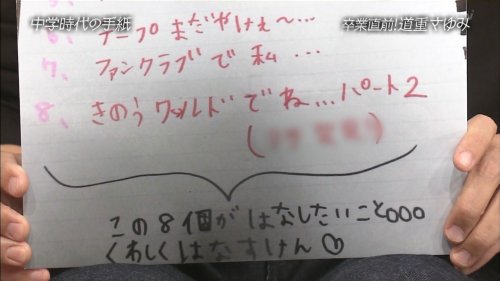 中学時代の手紙
卒業直前!道重さゆみ
6、テープまだやけぇ〜...
7、ファンクラブで私...
8、きのうワールドでね...パート2
この8個がはなしたいこと○○○
くわしくはなすけん♡